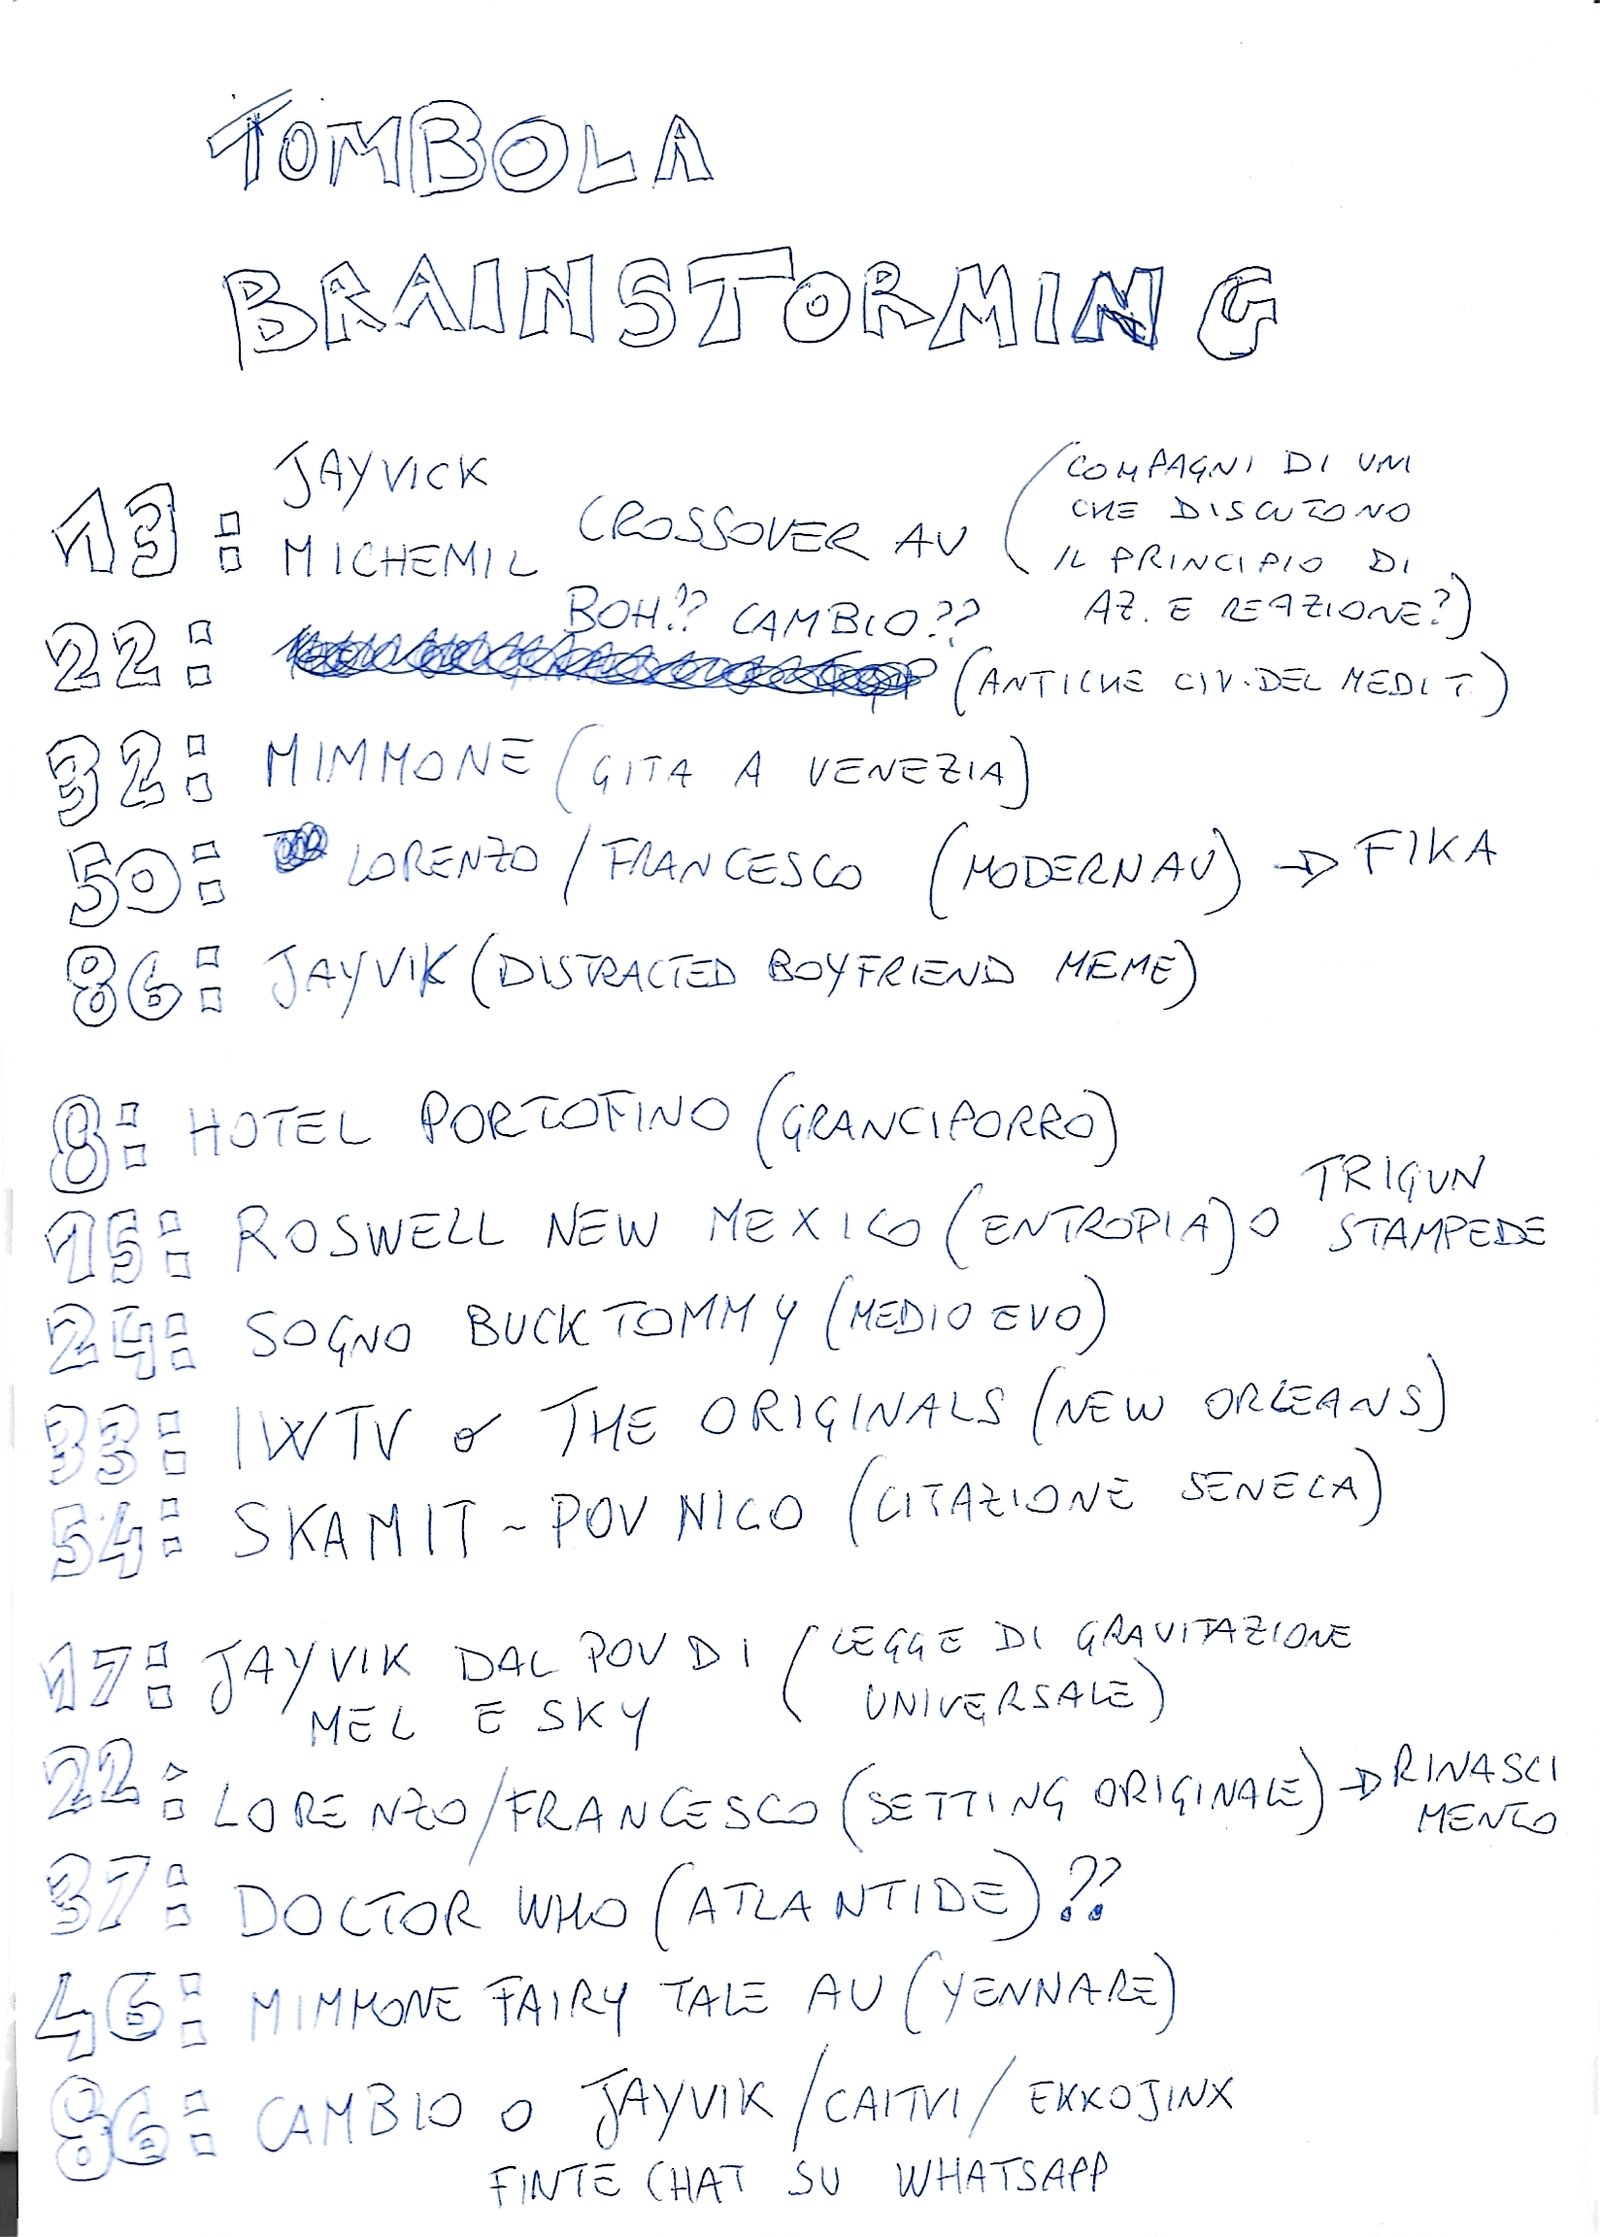 TOMBOLA
BRAINSTORMING
13: JAYVICK MICHEMIL CROSSOVER AU (COMPAGNI DI UNI
CHE DISCUTONO
IL PRINCIPIO DI
AZ. E REAZIONE?)
BOH?? CAMBIO??
22: (ANTICHE CIV. DEL MEDIT.)
32: MIMMONE (GITA A VENEZIA)
50: LORENZO / FRANCESCO (MODERN AU) → FIKA
86: JAYVIK (DISTRACTED BOYFRIEND MEME)
8: HOTEL PORTOFINO (GRANCIPORRO)
15: ROSWELL NEW MEXICO (ENTROPIA) O TRIGUN
STAMPEDE
24: SOGNO BUCKTOMMY (MEDIOEVO)
33: IWTV o THE ORIGINALS (NEW ORLEANS)
54: SKAMIT - POV NICO (CITAZIONE SENECA)
17: JAYVIK DAL POV DI (LEGGE DI GRAVITAZIONE
MEL E SKY UNIVERSALE)
22: LORENZO/FRANCESCO (SETTING ORIGINALE) → RINASCI
MENTO
37: DOCTOR WHO (ATLANTIDE)??
46: MIMMONE FAIRY TALE AU (YENNARE)
86: CAMBIO O JAYVIK / CAITVI / EKKOJINX
FINTE CHAT SU WHATSAPP